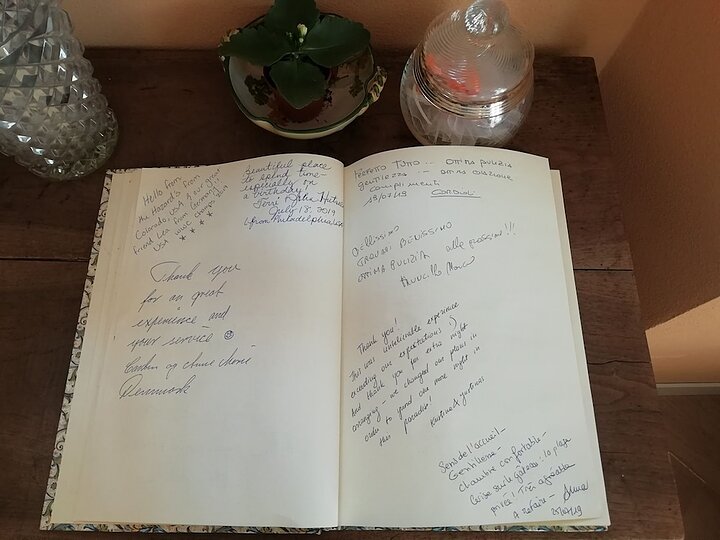 Hello from
the Hazard's from
Colorado, USA & our great
friend Lea from Germany
USA
Beautiful place
to spend time -
especially on
a birthday!
July 18, 2019
from Philadelphia
Thank you
for an great
experience and
your service ☺
Denmark
PERFETTO TUTTO ... OTTIMA PULIZIA
GENTILEZZA ... OTTIMA COLAZIONE
COMPLIMENTI
19/07/19
BELLISSIMO
OTTIMA PULIZIA alla prossima!!!
Thank you!
This was unbelievable experience
exceeding our expectations :)
And thank you for extra night
arranging - we changed our plans in
order to spend one more night in
this paradise!
Sens de l'accueil -
Gentillesse
Chambre confortable -
Cerise sur le gâteau : la plage
privée! Très agréable
A refaire -
25/07/19